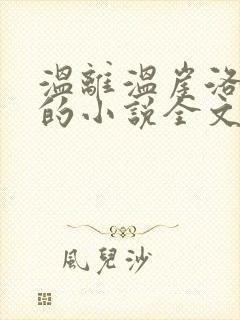 溫離溫崖洛
的小說全文
風兒沙